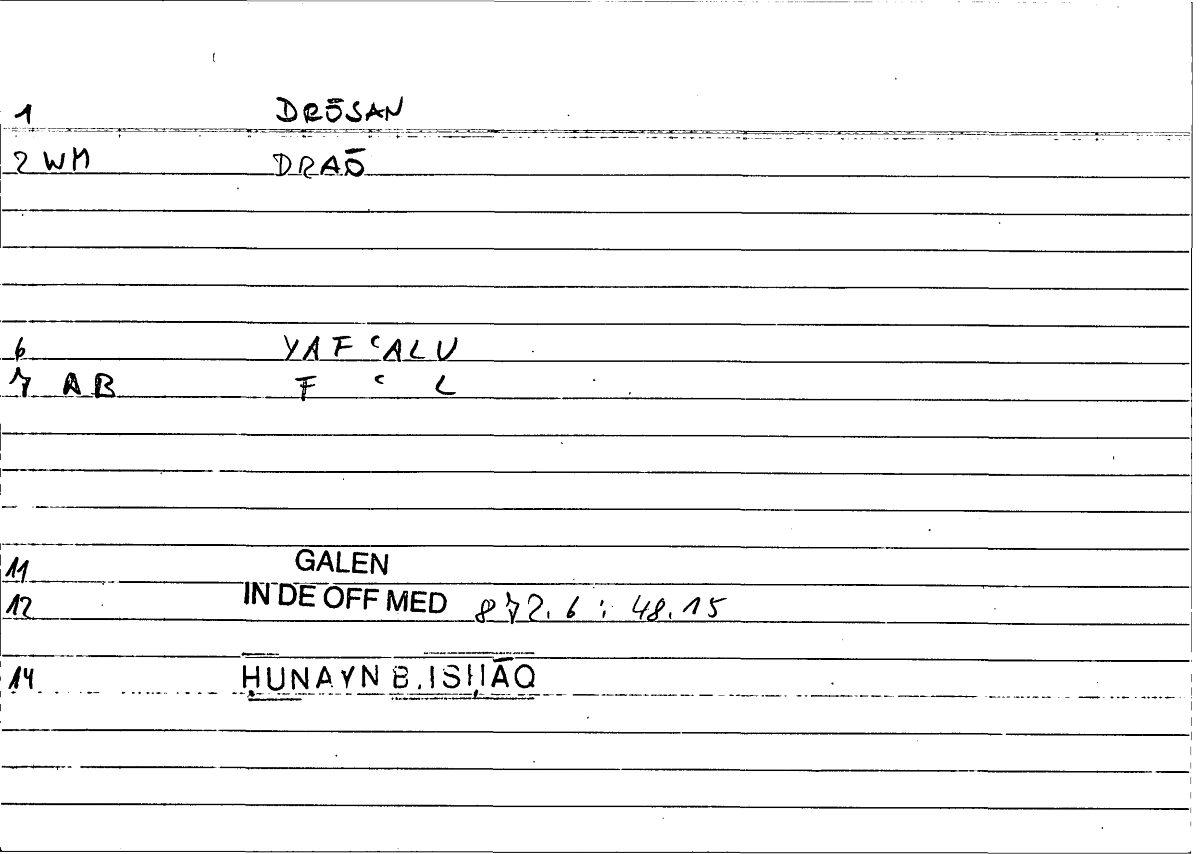 1 DRŌSAN
2 WM DRAŌ
6 YAFʿALU
7 AB F ʿ L
11 GALEN
12 IN DE OFF MED 872.6 : 48.15
14 ḤUNAYN B. ISḤĀQ